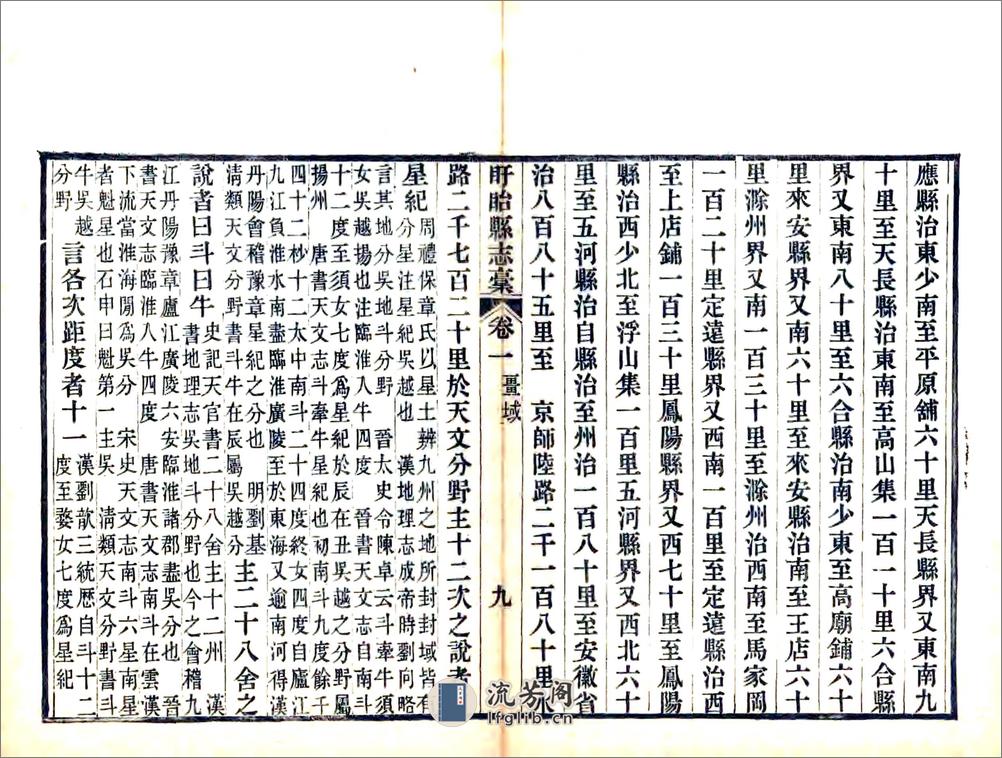 應縣治東少南至平原舖六十里天長縣界又東南九
十里至天長縣治東南至高山集一百一十里六合縣
界又東南八十里至六合縣治南少東至高廟鋪六十
里來安縣界又南六十里至來安縣治南至王店六十
里滁州界又南一百三十里至滁州治西南至馬家岡
一百二十里定遠縣界又西南一百里至定遠縣治西
至上店鋪一百三十里鳳陽縣界又西七十里至鳳陽
縣治西少北至浮山集一百里五河縣界又西北六十
里至五河縣治自縣治至州治一百八十里至安徽省
治八百八十五里至 京師陸路二千一百八十里水
盱眙縣志稾 卷一 疆域 九
路二千七百二十里於天文分野主十二次之說者
星紀 周禮保章氏以星土辨九州之地所封封域皆有
分星注星紀吳越也 漢地理志成帝時劉向略
言其地分吳地斗分野 晉太史令陳卓云斗牽牛須
女吳越揚也注臨淮入牛四度 晉書天文志自南斗
十二度至須女七度爲星紀於辰在丑吳越之分野屬
揚州 唐書天文志斗牽牛星紀也初南斗九度餘千
四十二秒十二太中南斗二十四度終女四度自廬江
九江負淮水南盡臨淮廣陵至於東海又逾南河得漢
丹陽會稽豫章星紀之分也 明劉基
淸類天文分野書斗牛在辰屬吳越分 主二十八舍之
說者曰斗曰牛 史記天官書二十八舍主十二州 漢
書地理志吳地斗分野也今之會稽九
江丹陽豫章廬江廣陵六安臨淮諸郡盡吳分也 晉
書天文志臨淮入牛四度 唐書天文志南斗在雲漢
下流當淮海閒爲吳分 宋史天文志南斗六星南星
者魁星也石申曰魁第一主吳 淸類天文分野書斗
牛吳越
分野 言各次距度者十一 漢劉歆三統歷自斗十二
度至婺女七度爲星紀
流芳阁
lfglib.cn